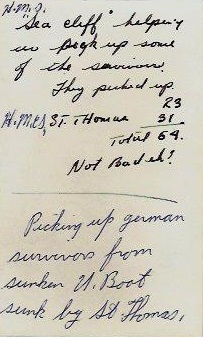 H.M.S.
"Sea cliff" helping
us pick up some
of the survivors.
They picked up.
23
H.M.C.S. ST. THOMAS 31
Total 54.
Not Bad eh?
Picking up german
survivors from
sunken U. Boat
sunk by St Thomas,